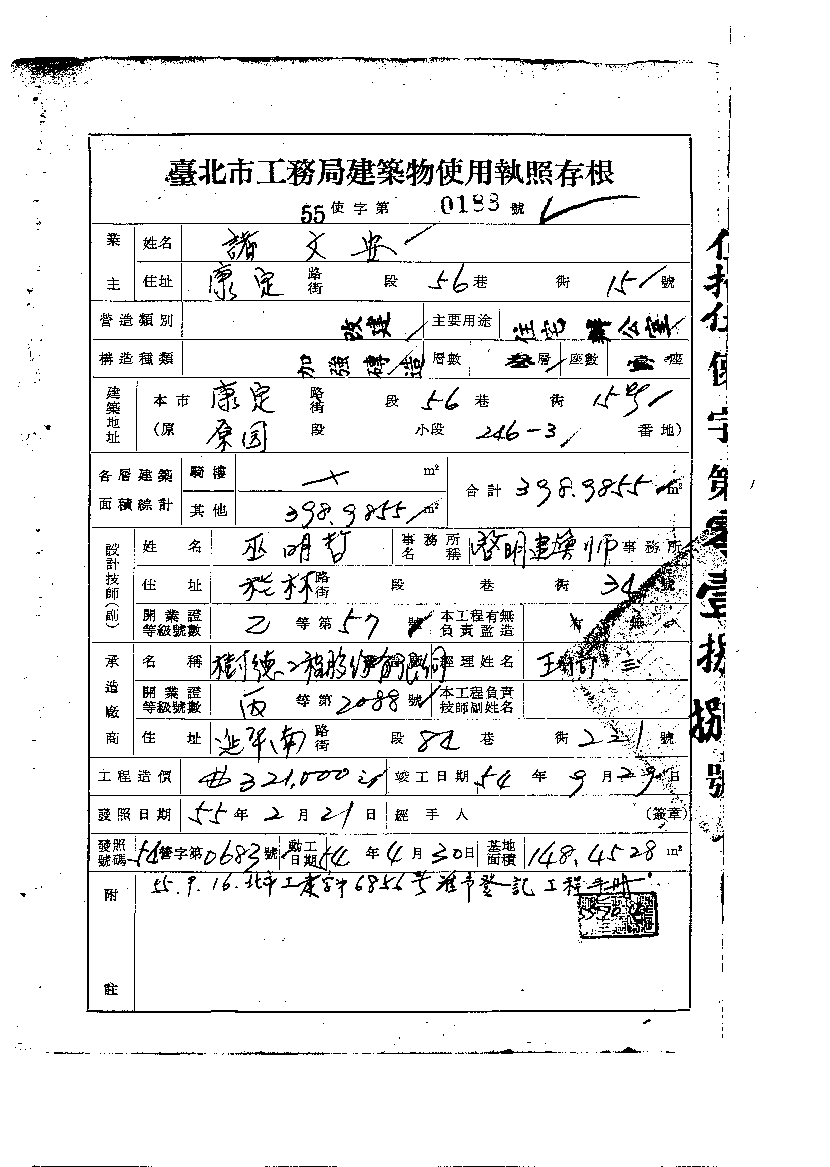 臺北市工務局建築物使用執照存根
55使字第 0188 號
業主 姓名 諸文安
住址 康定 路街 段 56巷 衖 15 號
營造類別 改建 主要用途 住宅 辦公室
構造種類 加強磚造 層數 層 座數 座
建築地址 本市 康定 路街 段 56巷 衖 15號
(原 段 小段 246-3 番地)
各層建築面積綜計 騎樓 m² 合計 398.9855 m²
其他 398.9855 m²
設計技師(副) 姓名 巫明哲 事務所名稱 啓明建築師事務所
住址 桂林 路街 段 巷 衖 34 號
開業證等級號數 乙等第57號 本工程有無負責監造 有 無
承造廠商 名稱 經理姓名 王
開業證等級號數 丙等第2088號 本工程負責技師副姓名
住址 延平南 路街 段 84巷 衖 221 號
工程造價 321,000 竣工日期 54年9月29日
發照日期 55年2月21日 經手人 (簽章)
發照號碼 54營字第0683號 動工日期 54年4月30日 基地面積 148.4528 m²
附註 55.9.16.北市工 字 6856号准予登記工程手冊
使字第零壹捌捌號